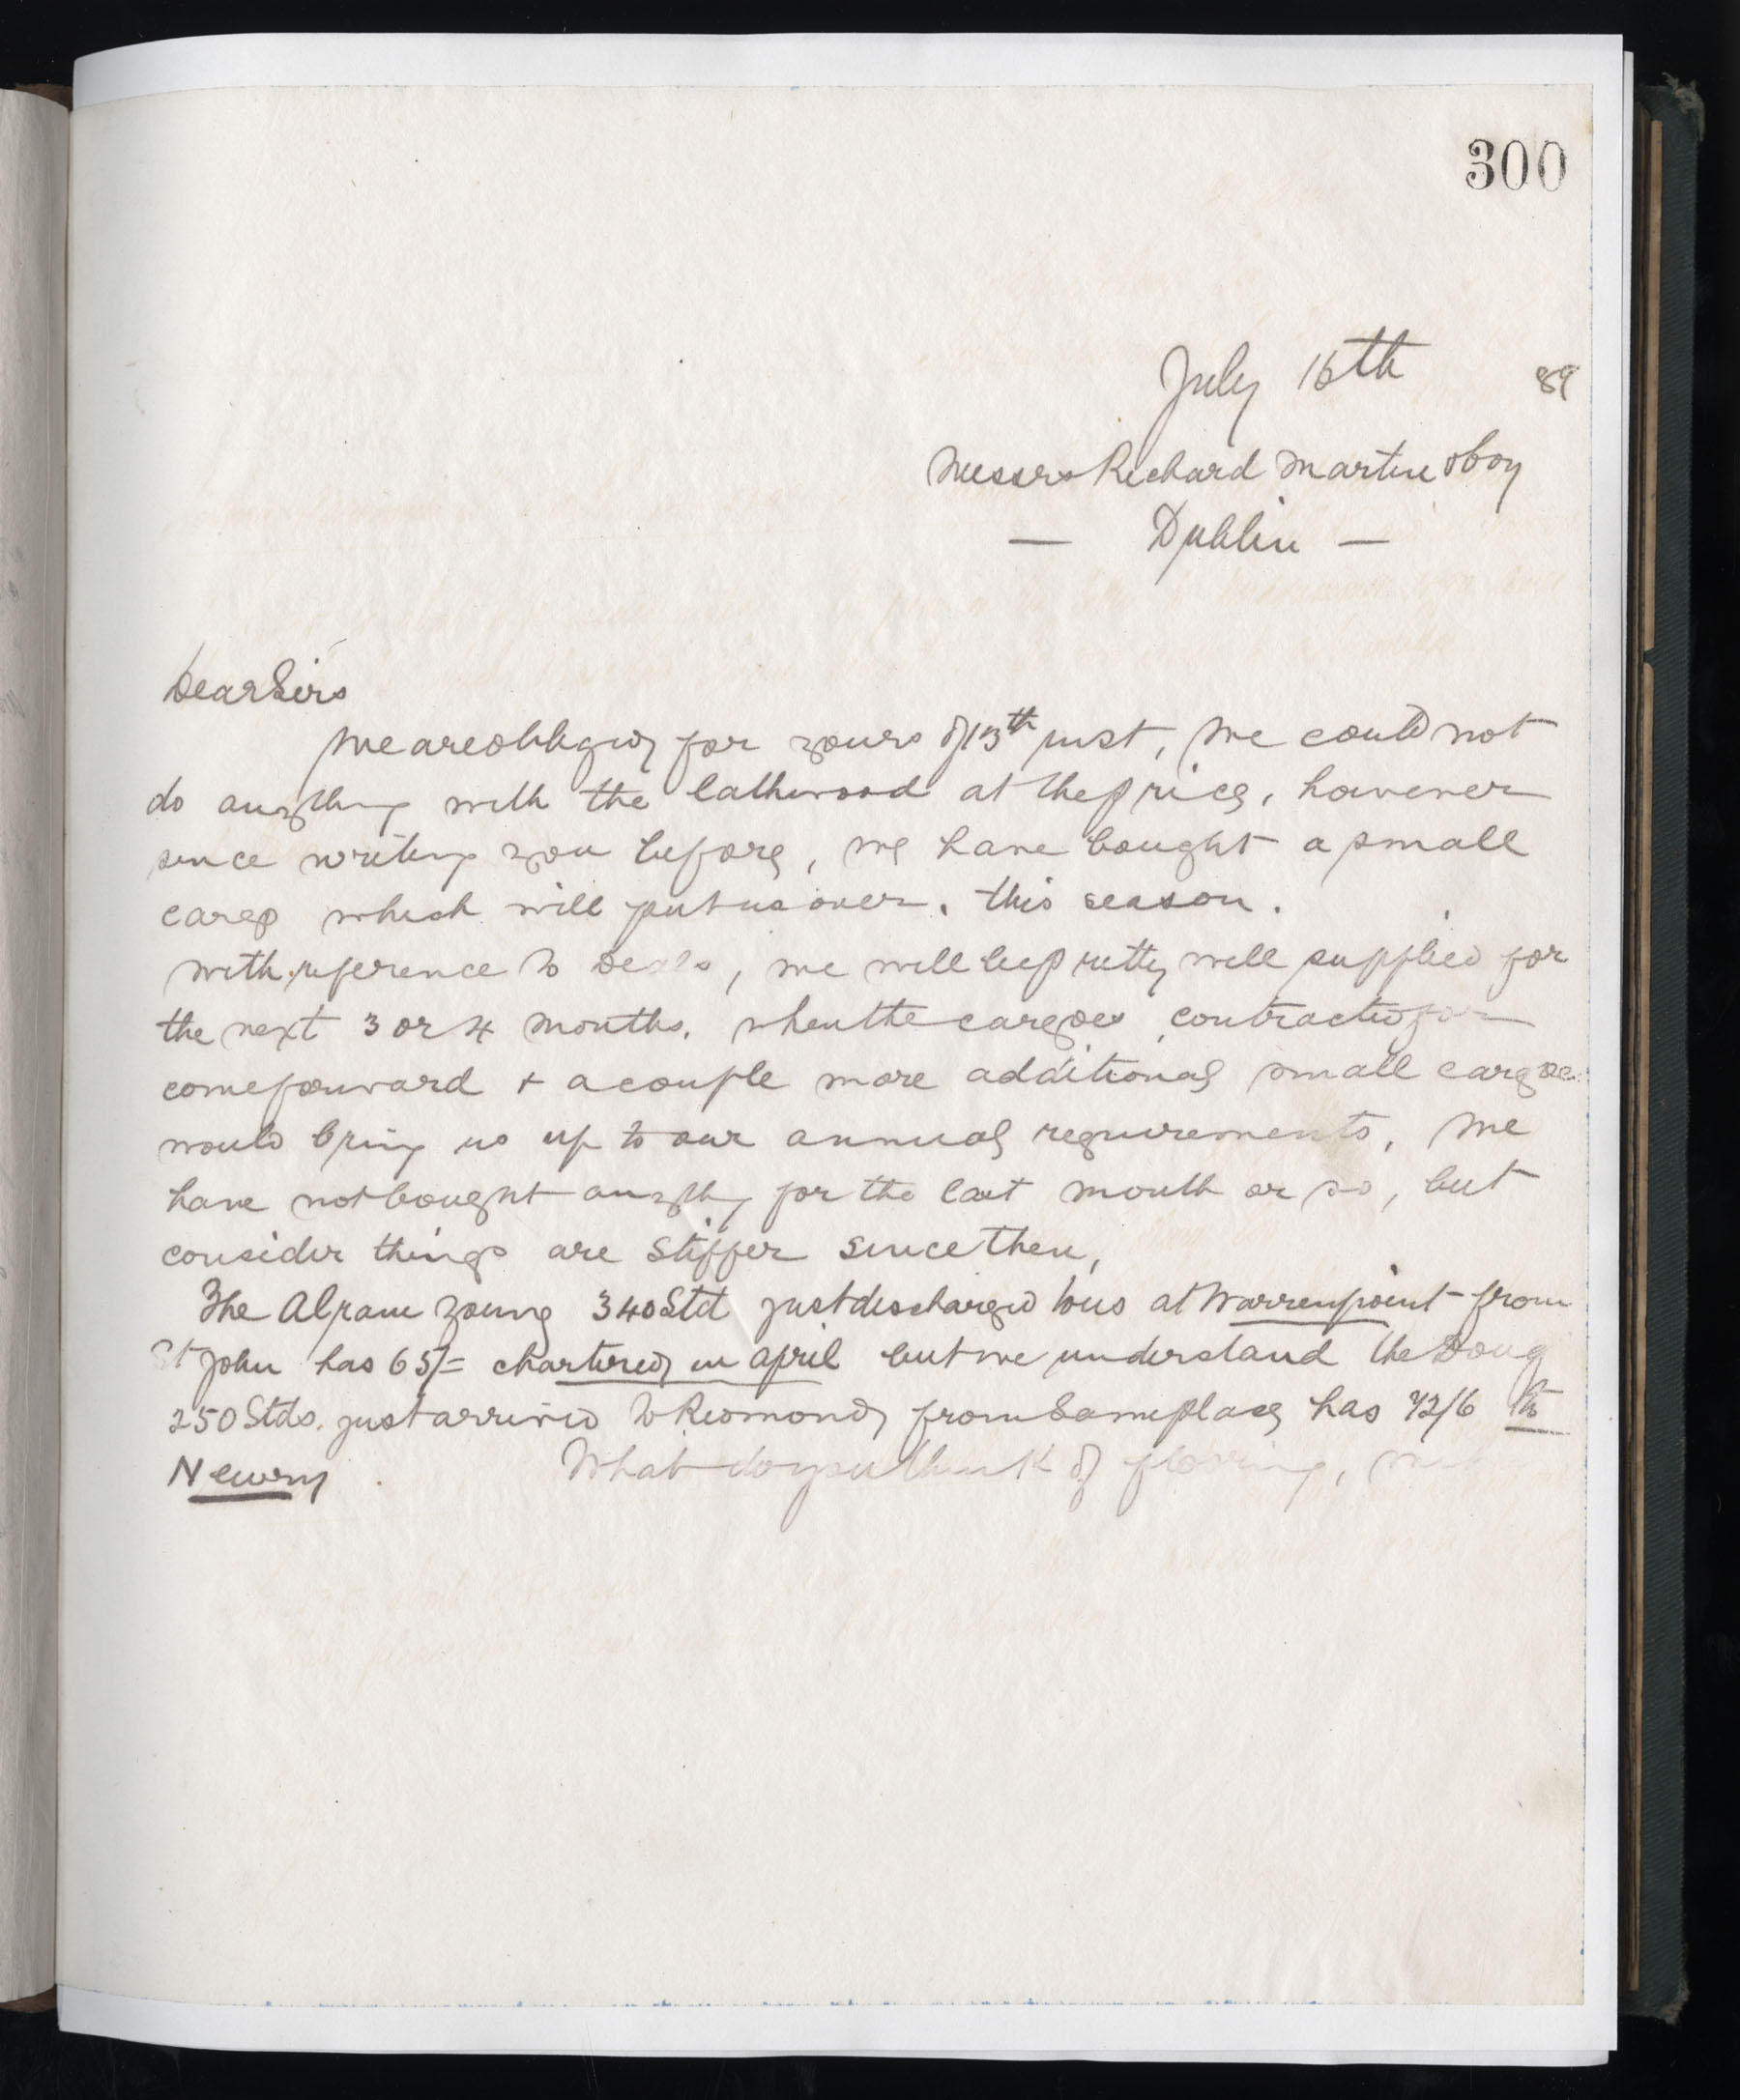 300
July 16th 89
Messrs Richard Martin & Coy
— Dublin —
Dear Sirs
We are obliged for yours of 13th inst, We could not
do anything with the lathwood at the price, however
since writing you before, we have bought a small
cargo which will put us over, this season.
with reference to Deals, we will be pretty well supplied for
the next 3 or 4 months, when the cargoes contracted for
come forward & a couple more additional small cargoes
would bring us up to our annual requirements, We
have not bought anything for the last month or so, but
consider things are stiffer since then,
The Young 340 Std just discharged to us at Warrenpoint from
St John has 65/= chartered in april but we understand the
250 Stds. just arrived to Redmond from same place has 72/6 to
Newry. What do you think of flooring,